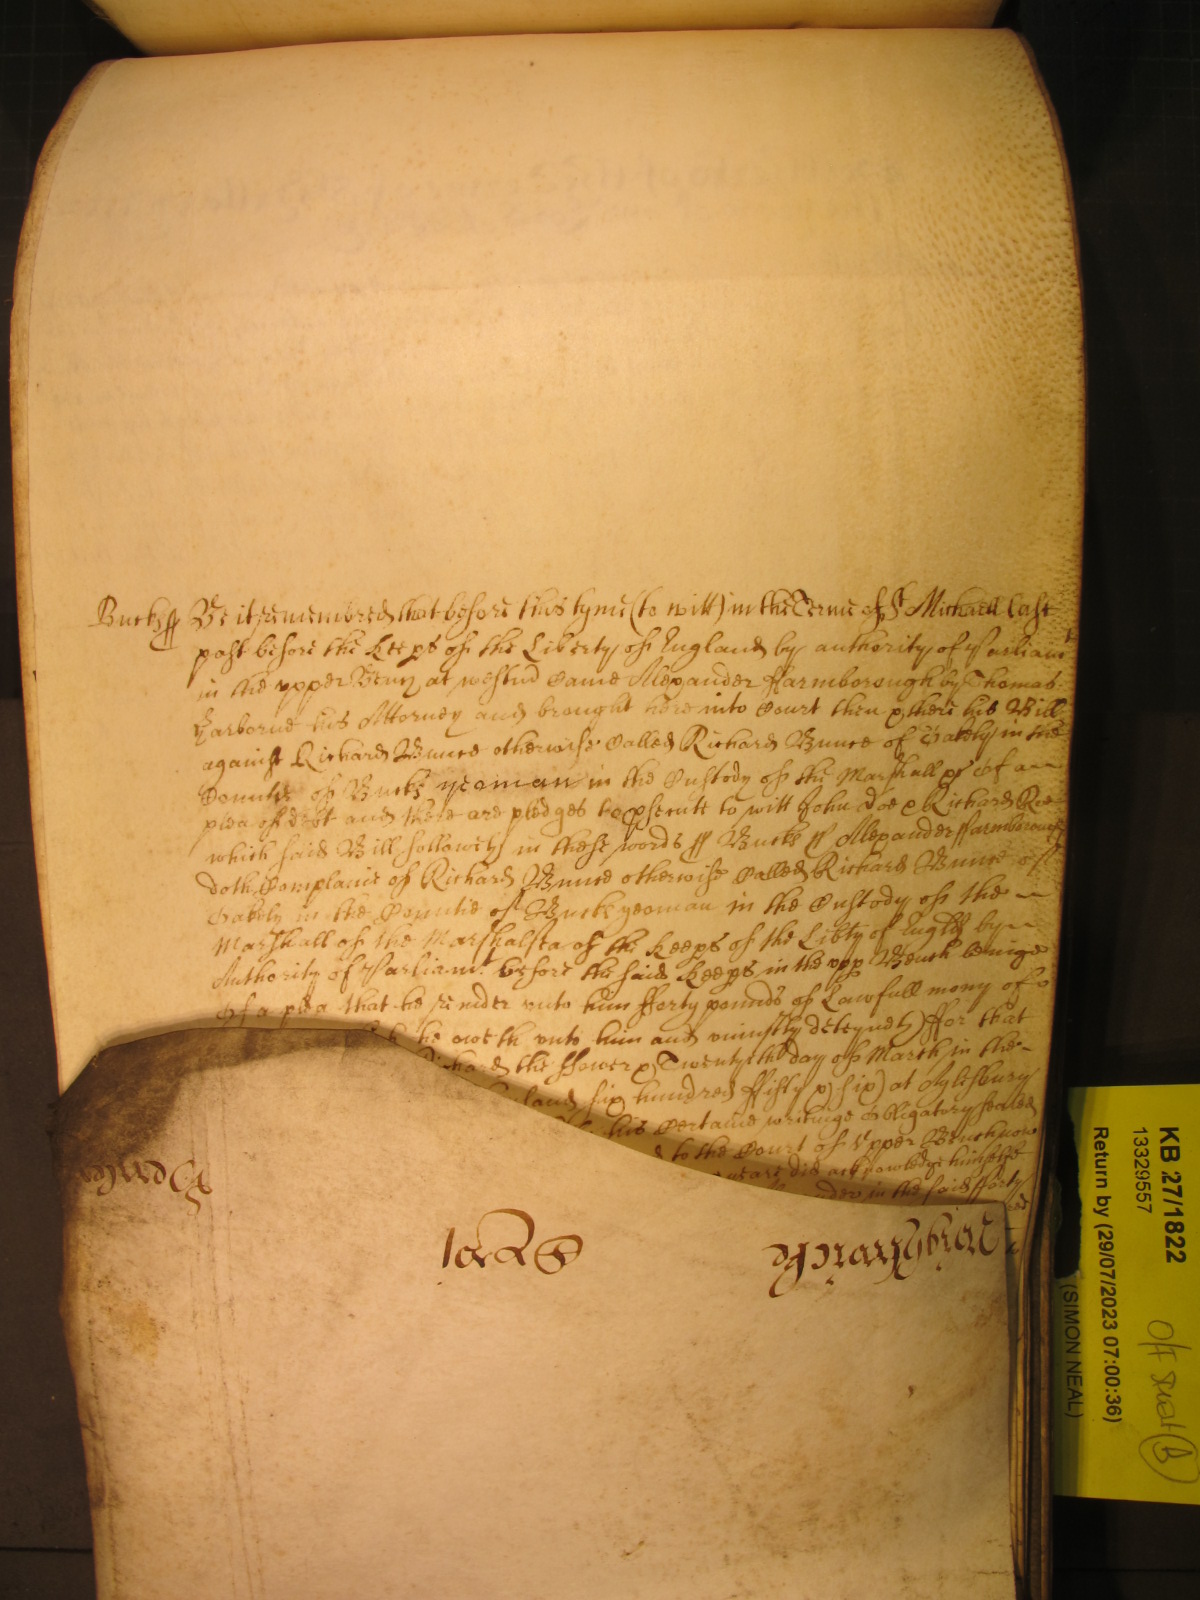 Bucks ss Be it remembred that before this tyme (to witt) in the Terme of St Michaell last
past before the Keeps of the Liberty of England by authority of Parliamt
in the vpper Bench at westmr Came Alexander ffarmborough by Thomas
his Attorney and brought here into Court then & there his Bill
against Richard Bunce otherwise Called Richard Bunce of Oakely in the
Countie of Bucks yeoman in the Custody of the Marshall &c of a
plea of debt and there are pledges to psecute to witt John Doe & Richard Roe
which said Bill followeth in these words ss Bucks ss Alexander ffarmborough
doth Complaine of Richard Bunce otherwise Called Richard Bunce of
Oakely in the Countie of Bucks yeoman in the Custody of the
Marshall of the Marshalsea of the Keeps of the Libty of Engld by
Authority of Parliamt before the said Keeps in the vpp Bench being
Of a plea that he render vnto him fforty pounds of Lawfull mony of
he oweth vnto him and vniustly deteyneth ffor that
the ffower & Twentyth day of March in the
land six hundred ffifty & six at Aylesbury
his Certaine writinge Obligatory sealed
to the Court of Vpper Bench now
did acknowledge himselfe
in the said fforty
1658
KB 27/1822
13329557
Return by (29/07/2023 07:00:36)
(SIMON NEAL)